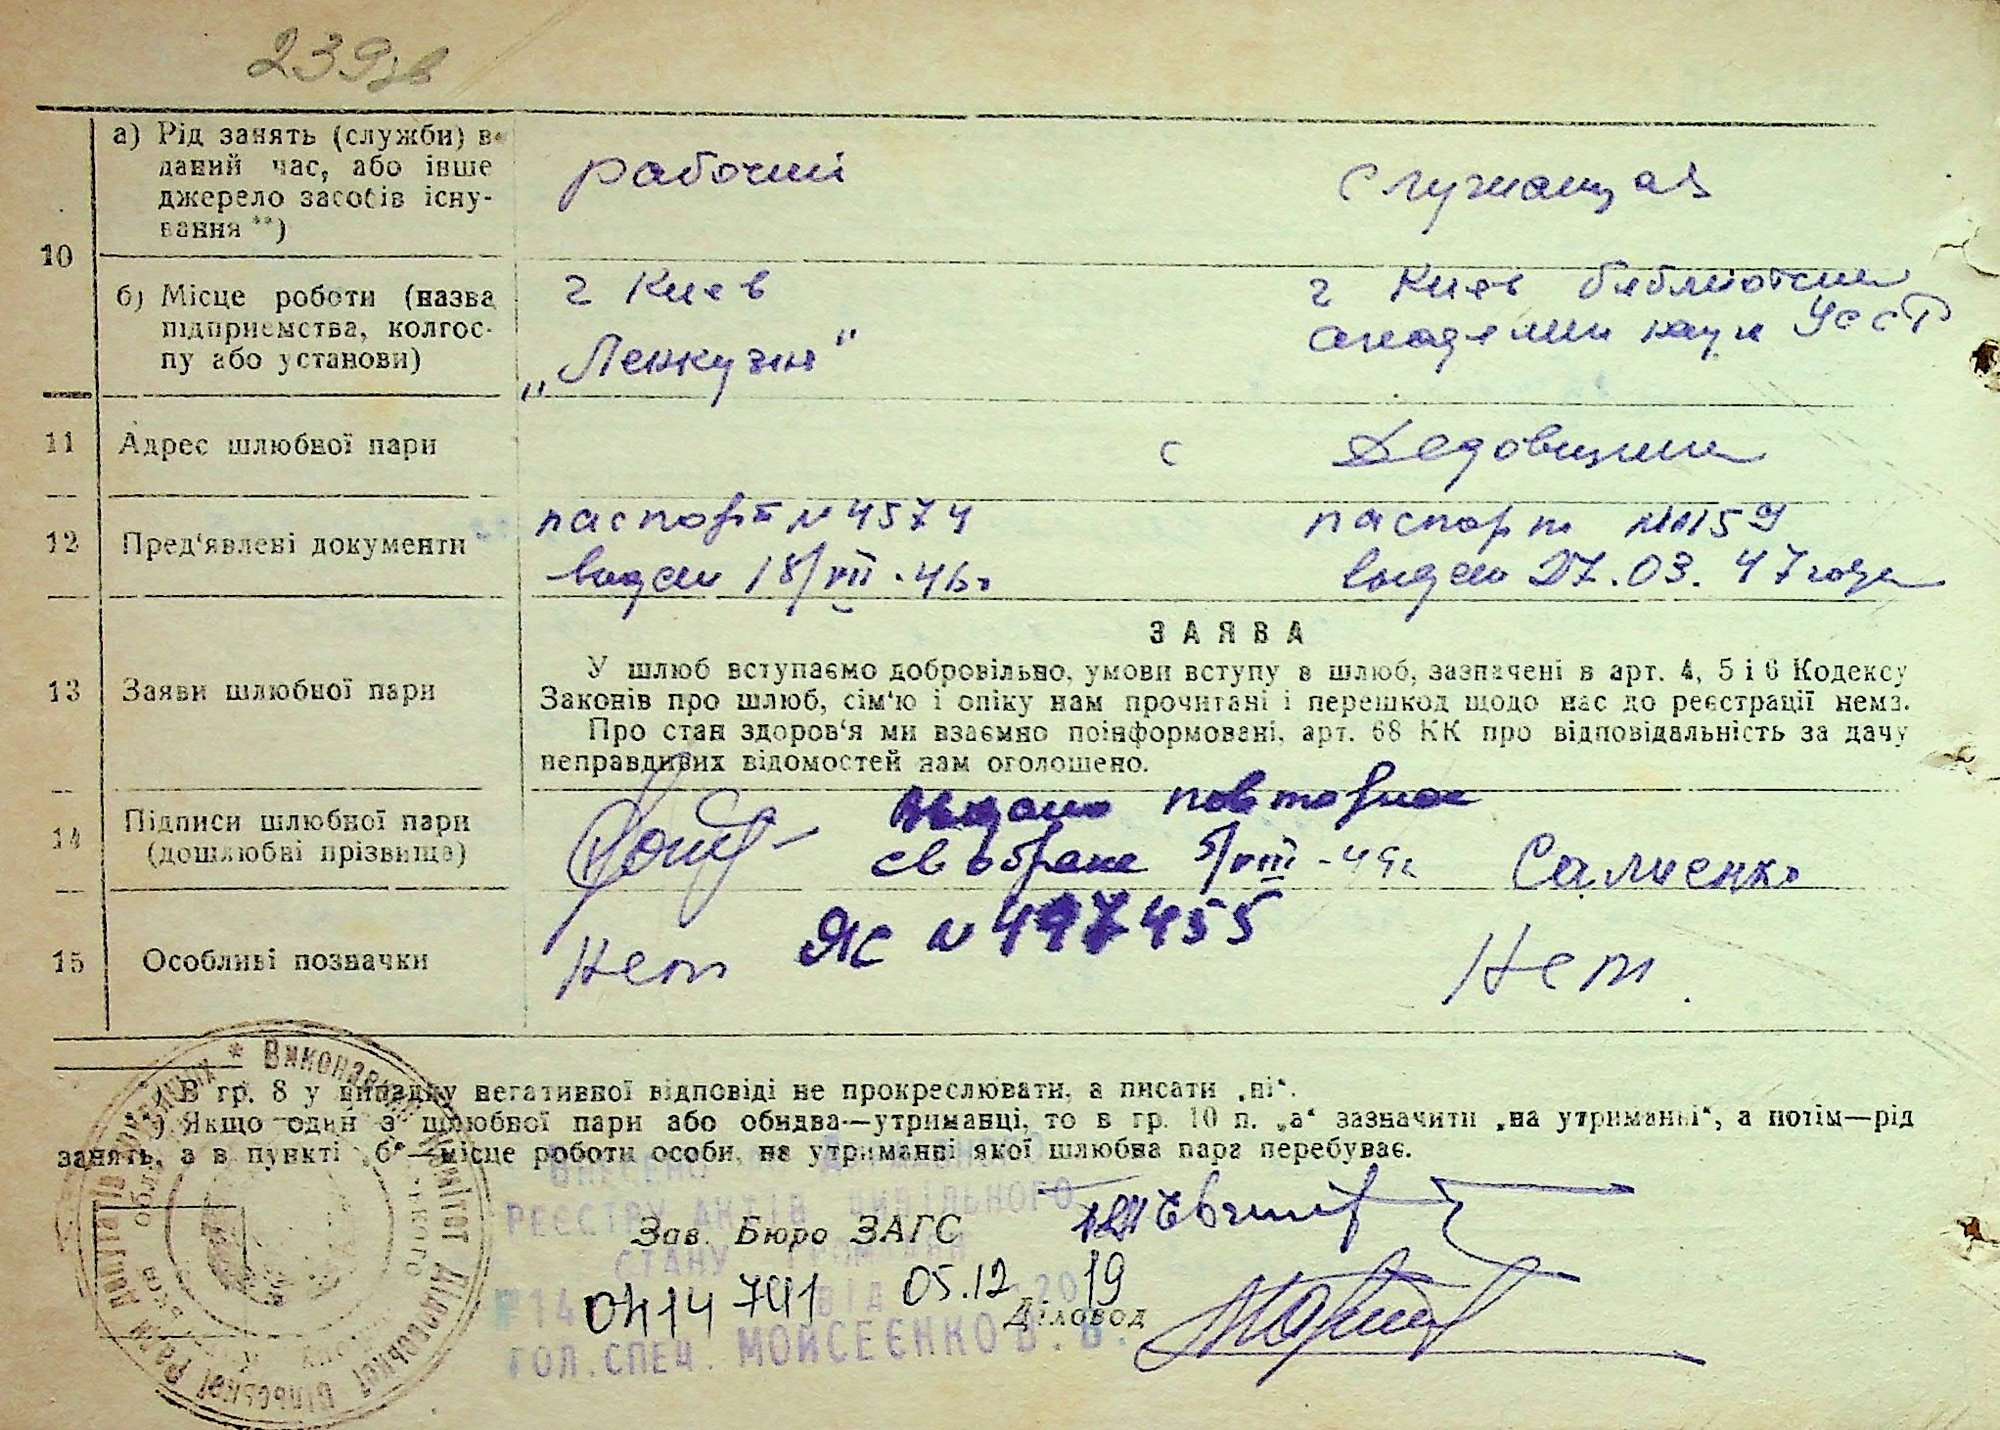 239зв
10
а) Рід занять (служби) в
даний час, або інше
джерело засобів існу-
вання **)
рабочий
служащая
б) Місце роботи (назва
підприємства, колгос-
пу або установи)
г Киев
„Ленкузня“
г Киев библиотеки
академии наук УССР
11
Адрес шлюбної пари
с Дедовщина
12
Пред‘явлені документи
паспорт N 4574
выдан 18/VII - 46г
паспорт
выдан 27.03.47 года
13
Заяви шлюбної пари
ЗАЯВА
У шлюб вступаємо добровільно, умови вступу в шлюб, зазначені в арт. 4, 5 і 6 Кодексу
Законів про шлюб, сім‘ю і опіку нам прочитані і перешкод щодо нас до реєстрації нема.
Про стан здоров‘я ми взаємно поінформовані, арт. 68 КК про відповідальність за дачу
неправдивих відомостей нам оголошено.
14
Підписи шлюбної пари
(дошлюбні прізвища)
выдано повторное
св о браке 5/VIII - 49г
ЯС N 497455
Салиенко
15
Особливі позначки
Нет
Нет.
*) В гр. 8 у випадку негативної відповіді не прокреслювати, а писати „ні“.
**) Якщо один з шлюбної пари або обидва—утриманці, то в гр. 10 п. „а“ зазначити „на утриманні“, а потім—рід
занять, а в пункті „б“—місце роботи особи, на утриманні якої шлюбна пара перебуває.
Виконавчий Комітет Дідівської Сільської Ради депутатів трудящих
ВНЕСЕНО ДО ДЕРЖАВНОГО
РЕЄСТРУ АКТІВ ЦИВІЛЬНОГО
СТАНУ ГРОМАДЯН
Зав. Бюро ЗАГС
№14 0414741 ВІД 05.12 2019
Діловод
ГОЛ.СПЕЦ. МОЙСЕЄНКО В. В.